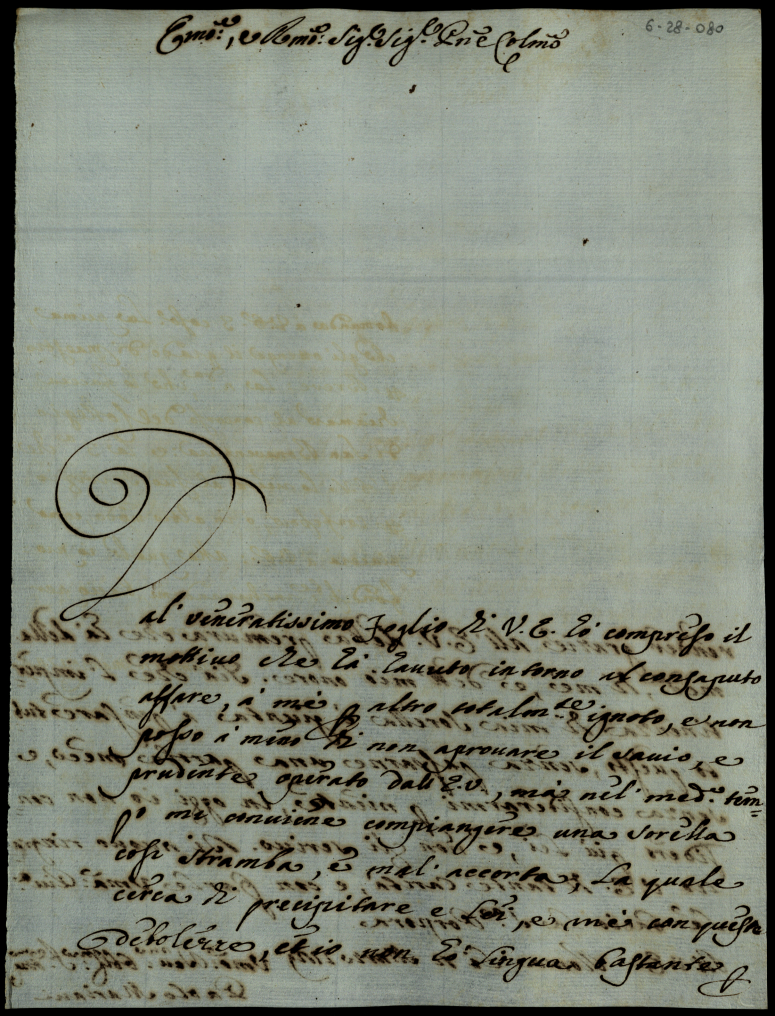 6-28-080
Emo:, e Rmo: Sig:r Sig:r Pne Colmo
Dal' veneratissimo Foglio di V. E. hò compreso il
mottivo che hà hauuto intorno al consaputo
affare, à mè p altro total.mte ignoto, e non
posso à meno di non aprouare il sauio, e
prudente operato dall' E.V., mà nel' med.o tem=
po mi conuiene compiangere una sorella
così stramba, e mal' accorta, la quale
cerca di precipitare e Lei, e mè con queste
debolezze, ed io non hò lingua bastante
p